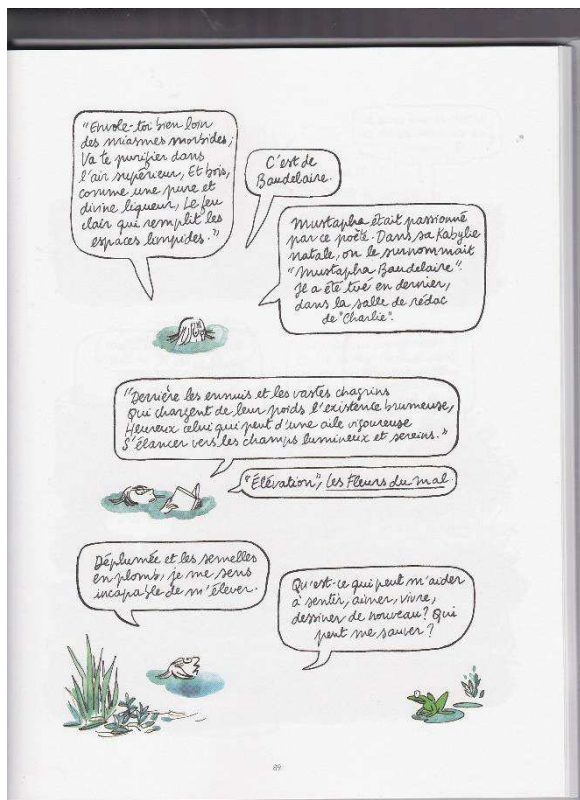 "Envole-toi bien loin
des miasmes morbides;
Va te purifier dans
l'air supérieur, Et bois,
comme une pure et
divine liqueur, Le feu
clair qui remplit les
espaces limpides."
C'est de
Baudelaire.
Mustapha était passionné
par ce poète. Dans sa Kabylie
natale, on le surnommait
"Mustapha Baudelaire".
Il a été tué en dernier,
dans la salle de rédac
de "Charlie".
"Derrière les ennuis et les vastes chagrins
Qui chargent de leur poids l'existence brumeuse,
Heureux celui qui peut d'une aile vigoureuse
S'élancer vers les champs lumineux et sereins."
"Élévation", Les Fleurs du mal.
Déplumée et les semelles
en plomb, je me sens
incapable de m'élever.
Qu'est-ce qui peut m'aider
à sentir, aimer, vivre,
dessiner de nouveau? Qui
peut me sauver?
89